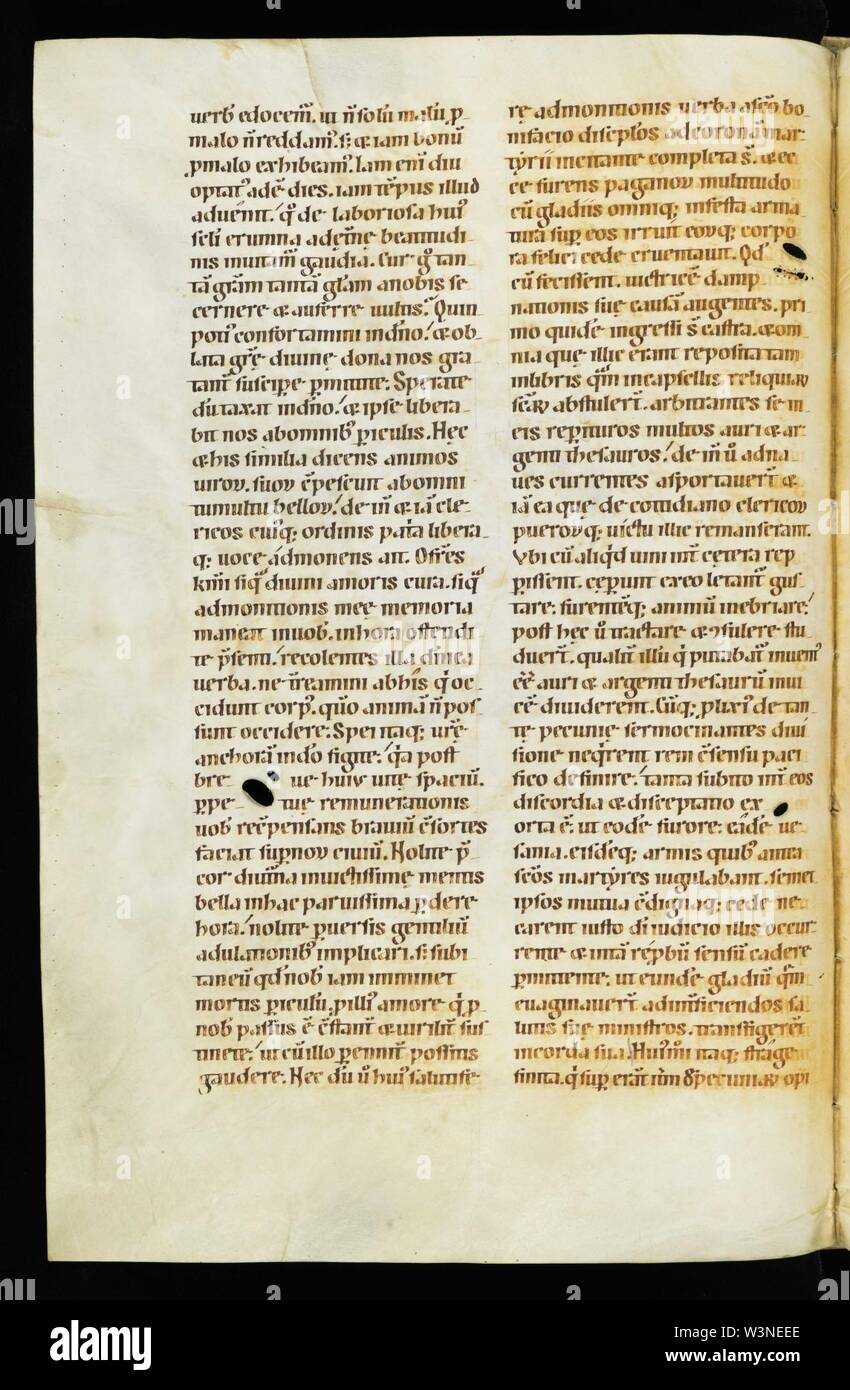 uerb̛ edocem̃. ut ñ solũ malũ p
malo ñ reddam᷒. s; & iam bonũ
p malo exhibeam᷒. Iam eni̅ diu
optat᷒ adẽ dies. iam tẽpus illud
aduenit. q̛ de laboriosa hui᷒
seli erumna ad etẽne beatitudi
nis inuitam̃ gaudia. Cur g̊ tan
tã grãm tantã glãm a nobis se
cernere & auferre uultis. Quin
poti᷒ confortamini in dño. & ob
lata grẽ diuine dona nos gra
tant̃ suscipe pmittite. Sperate
dũtaxat in dño. & ipse libera
bit nos ab omnib᷒ piculis. Hec
& his similia dicens animos
uiroꝝ. suoꝝ cõpescuit ab omni
tumultu belloꝝ. dein̅ & iã cle
ricos cuiq; ordinis pat̃na libera
q; uoce admonens ait. Osr̃es
km̃i siq̛ diuini amoris cura. siq̛
admonitionis mee memoria
maneat in uob̛. in hora ostendi
te p̃senti. recolentes illa dñica
uerba. ne t̃reamini ab his q̛ oc
cidunt corp᷒. qm̅ animã ñ pos
sunt occidere. Spei itaq; urẽ
anchorã in dõ figite. q̛a post
bre ue hui᷒ uite spaciũ.
ppe tue remunerationis
uob̛ recõpensans brauiũ cõsortes
faciat supnoꝝ ciuiũ. Nolite p̃
cor diutina inuictissime mentis
bella in hac paruissima pdere
hora. nolite puersis gentiliũ
adulationib᷒ implicari. s; subi
taneũ qd̛ nob̛ iam imminet
mortis piculũ. p illi᷒ amore q̛ p
nob̛ passus ẽ cõstant̃ & uirilit̃ sus
tinete. ut cũ illo pennit̃ possitis
gaudere. Hec dũ ũ hui᷒ salutife
re admonitionis uerba a scõ bo
nifacio disciplos ad coronã mar
tyrii incitante completa s̃. & ec
ce furens paganoꝝ multitudo
cũ gladiis omniq; infesta arma
tura sup eos irruit eoꝝq; corpo
ra felici cede cruentauit. Qd̛
cũ fecissent. uictricẽ damp
nationis sue causã augentes. pri
mo quidẽ ingressi s̃ castra. & om
nia que illic erant reposita tam
in libris qm̃ in capsellis reliquiaꝝ
scãꝝ abstulert̃. arbitrantes se in
eis repituros multos auri & ar
genti thesauros. dein̅ ũ ad na
ues currentes asportauert̃ &
iã ea que de cotidiano clericoꝝ
pueroꝝq; uictu illic remanserant.
Vbi cũ aliq̛d uini int̃ cetera rep
pissent. cepunt ex eo letant̃ gus
tare. furentẽq; animũ inebriare.
post hec ũ tractare & ꝯsulere stu
duert̃. qualit̃ illũ q̛ putabat̃ inueni᷒
eẽ auri & argenti thesaurũ inui
cẽ diuiderent. Cũq; plixi᷒ de tan
te pecunie sermocinantes diui
sione neq̛rent rem cõsensu paci
fico definire. tanta subito int̃ eos
discordia & disceptatio ex
orta ẽ. ut eodẽ furore. eãdẽ ue
sania. eisdẽq; armis quib᷒ antea
scõs martyres iugulabant. semet
ipsos mutua cõdignaq; cede ne
carent iusto di iudicio illis occur
rente & intã repbũ sensũ cadere
pmittente. ut eundẽ gladiũ qm̃
euaginauert̃ ad int̃ficiendos sa
lutis sue ministros. transfigerent̃
in corda sua. Hui᷒m̃i itaq; strage
finita. q̛ sup erãt uim pecuniaꝝ opi